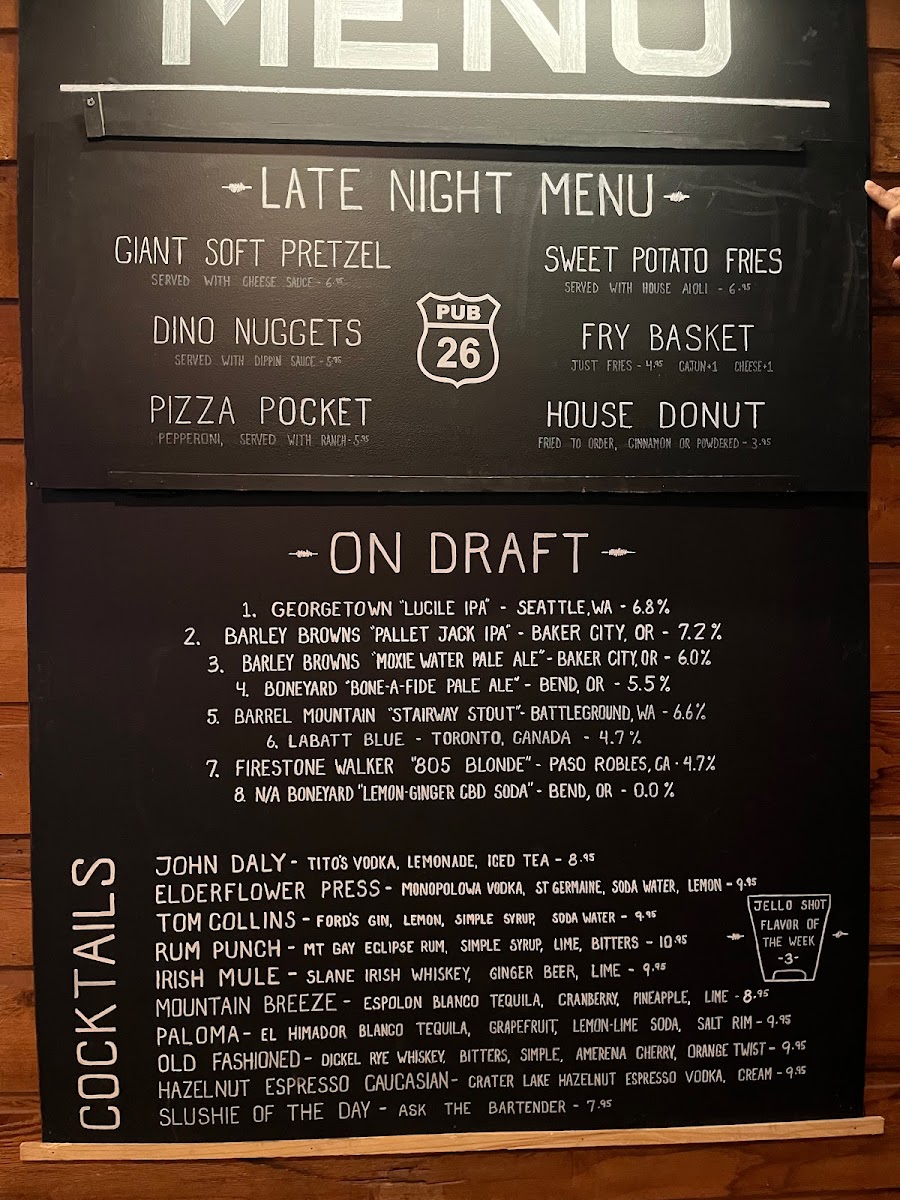 MENU
LATE NIGHT MENU
GIANT SOFT PRETZEL
SERVED WITH CHEESE SAUCE - 6.95
SWEET POTATO FRIES
SERVED WITH HOUSE AIOLI - 6.95
DINO NUGGETS
SERVED WITH DIPPIN SAUCE - 5.95
PUB
26
FRY BASKET
JUST FRIES - 4.95 CAJUN+1 CHEESE+1
PIZZA POCKET
PEPPERONI, SERVED WITH RANCH - 5.95
HOUSE DONUT
FRIED TO ORDER, CINNAMON OR POWDERED - 3.95
ON DRAFT
1. GEORGETOWN "LUCILE IPA" - SEATTLE, WA - 6.8%
2. BARLEY BROWNS "PALLET JACK IPA" - BAKER CITY, OR - 7.2%
3. BARLEY BROWNS "MOXIE WATER PALE ALE" - BAKER CITY, OR - 6.0%
4. BONEYARD "BONE-A-FIDE PALE ALE" - BEND, OR - 5.5%
5. BARREL MOUNTAIN "STAIRWAY STOUT" - BATTLEGROUND, WA - 6.6%
6. LABATT BLUE - TORONTO, CANADA - 4.7%
7. FIRESTONE WALKER "805 BLONDE" - PASO ROBLES, CA - 4.7%
8. N/A BONEYARD "LEMON-GINGER CBD SODA" - BEND, OR - 0.0%
COCKTAILS
JOHN DALY - TITO'S VODKA, LEMONADE, ICED TEA - 8.95
ELDERFLOWER PRESS - MONOPOLOWA VODKA, ST GERMAINE, SODA WATER, LEMON - 9.95
TOM COLLINS - FORD'S GIN, LEMON, SIMPLE SYRUP, SODA WATER - 9.95
RUM PUNCH - MT GAY ECLIPSE RUM, SIMPLE SYRUP, LIME, BITTERS - 10.95
IRISH MULE - SLANE IRISH WHISKEY, GINGER BEER, LIME - 9.95
MOUNTAIN BREEZE - ESPOLON BLANCO TEQUILA, CRANBERRY, PINEAPPLE, LIME - 8.95
PALOMA - EL HIMADOR BLANCO TEQUILA, GRAPEFRUIT, LEMON-LIME SODA, SALT RIM - 9.95
OLD FASHIONED - DICKEL RYE WHISKEY, BITTERS, SIMPLE, AMERENA CHERRY, ORANGE TWIST - 9.95
HAZELNUT ESPRESSO CAUCASIAN - CRATER LAKE HAZELNUT ESPRESSO VODKA, CREAM - 9.95
SLUSHIE OF THE DAY - ASK THE BARTENDER - 7.95
JELLO SHOT
FLAVOR OF
THE WEEK
-3-